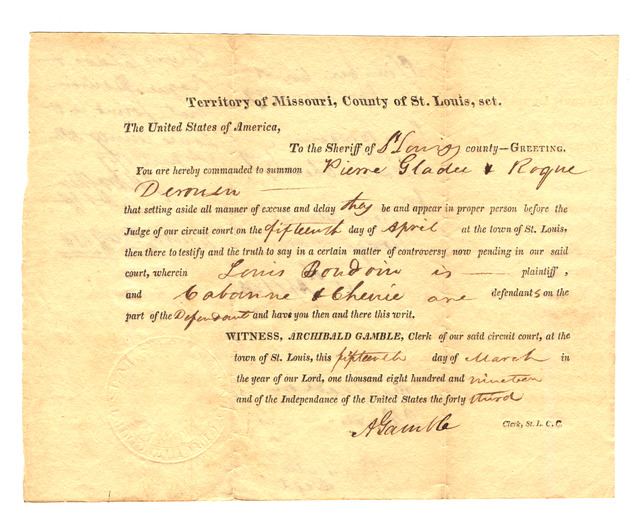 Territory of Missouri, County of St. Louis, sct.
The United States of America,
To the Sheriff of St Louis county—GREETING.
You are hereby commanded to summon Pierre Gladee & Roque
Derouen
that setting aside all manner of excuse and delay they be and appear in proper person before the
Judge of our circuit court on the fifteenth day of April at the town of St. Louis,
then there to testify and the truth to say in a certain matter of controversy now pending in our said
court, wherein Louis Boudoin is plaintiff,
and Cabanne & Chenie are defendants on the
part of the Defendant and have you then and there this writ.
WITNESS, ARCHIBALD GAMBLE, Clerk of our said circuit court, at the
town of St. Louis, this fifteenth day of March in
the year of our Lord, one thousand eight hundred and nineteen
and of the Independence of the United States the forty third
AGamble Clerk, St. L. C. C.